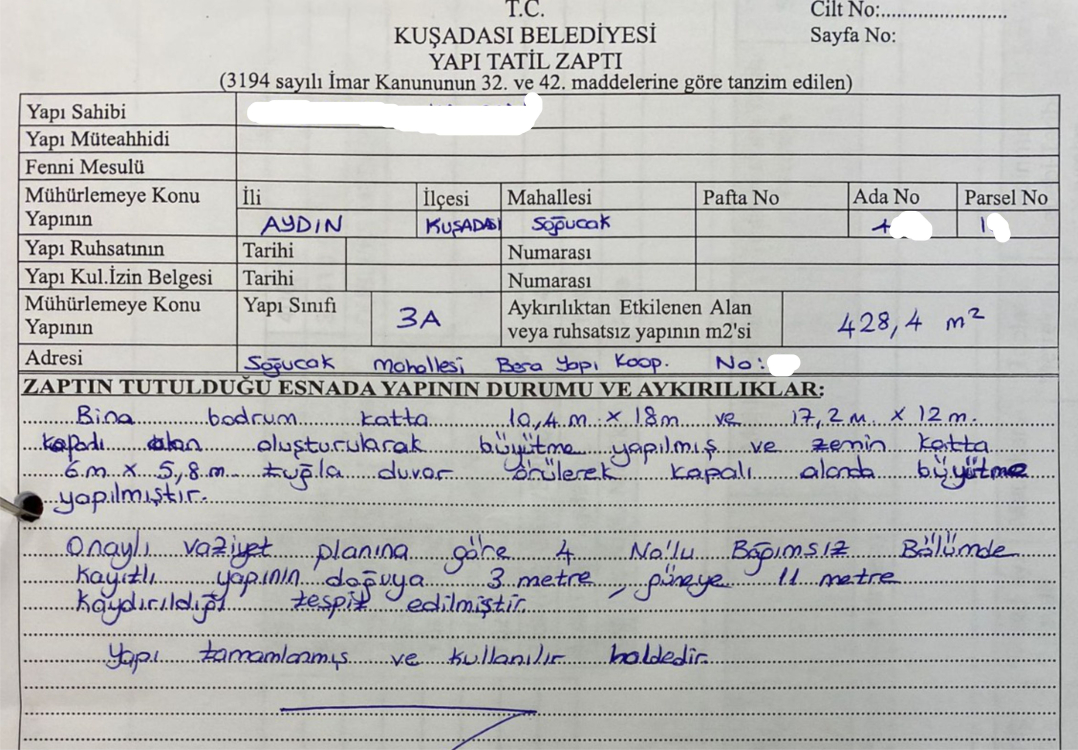 T.C.
KUŞADASI BELEDİYESİ
YAPI TATİL ZAPTI
(3194 sayılı İmar Kanununun 32. ve 42. maddelerine göre tanzim edilen)
Cilt No:............................
Sayfa No:
Yapı Sahibi
Yapı Müteahhidi
Fenni Mesulü
Mühürlemeye Konu Yapının İli İlçesi Mahallesi Pafta No Ada No Parsel No
AYDIN KUŞADASI Soğucak 4 1
Yapı Ruhsatının Tarihi Numarası
Yapı Kul.İzin Belgesi Tarihi Numarası
Mühürlemeye Konu Yapının Yapı Sınıfı 3A Aykırılıktan Etkilenen Alan veya ruhsatsız yapının m2'si 428,4 m²
Adresi Soğucak Mahallesi Bera Yapı Koop. No:
ZAPTIN TUTULDUĞU ESNADA YAPININ DURUMU VE AYKIRILIKLAR:
Bina bodrum katta 10,4 m. x 18m ve 17,2 m. x 12 m.
kapalı alan oluşturularak büyütme yapılmış ve zemin katta
6 m. x 5,8 m. tuğla duvar örülerek kapalı alanda büyütme
yapılmıştır.
Onaylı vaziyet planına göre 4 No'lu Bağımsız Bölümde
kayıtlı yapının doğuya 3 metre, güneye 11 metre
kaydırıldığı tespit edilmiştir.
Yapı tamamlanmış ve kullanılır haldedir.